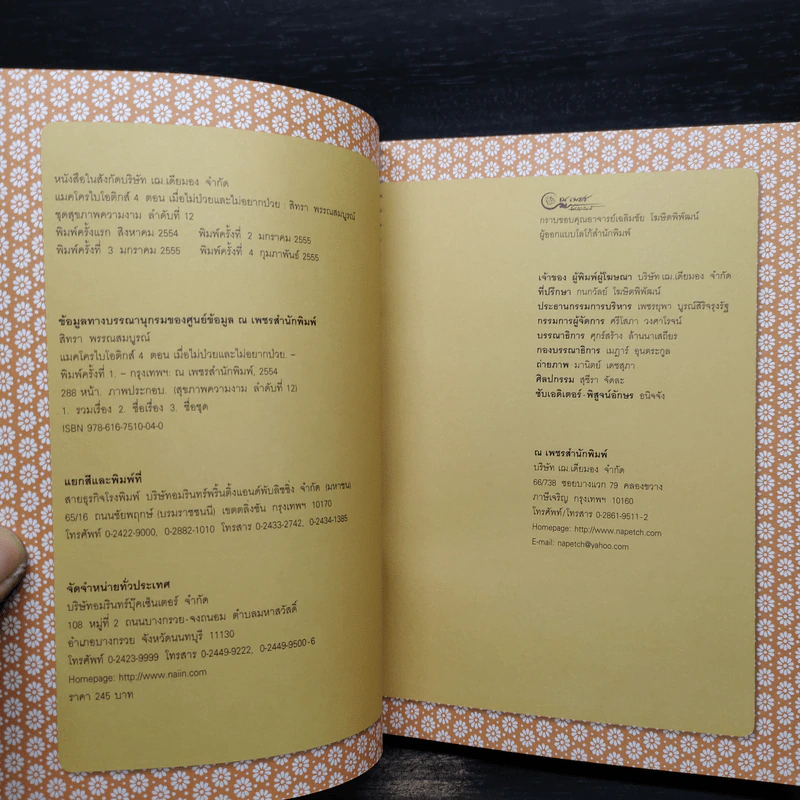 หนังสือในสังกัดบริษัท เฌ.เดียมอง จำกัด
แมคโครไบโอติกส์ 4 ตอน เมื่อไม่ป่วยและไม่อยากป่วย : สิทรา พรรณสมบูรณ์
ชุดสุขภาพความงาม ลำดับที่ 12
พิมพ์ครั้งแรก สิงหาคม 2554 พิมพ์ครั้งที่ 2 มกราคม 2555
พิมพ์ครั้งที่ 3 มกราคม 2555 พิมพ์ครั้งที่ 4 กุมภาพันธ์ 2555
ข้อมูลทางบรรณานุกรมของศูนย์ข้อมูล ณ เพชรสำนักพิมพ์
สิทรา พรรณสมบูรณ์
แมคโครไบโอติกส์ 4 ตอน เมื่อไม่ป่วยและไม่อยากป่วย. –
พิมพ์ครั้งที่ 1. – กรุงเทพฯ: ณ เพชรสำนักพิมพ์, 2554
288 หน้า. ภาพประกอบ. (สุขภาพความงาม ลำดับที่ 12)
1. รวมเรื่อง 2. ชื่อเรื่อง 3. ชื่อชุด
ISBN 978-616-7510-04-0
แยกสีและพิมพ์ที่
สายธุรกิจโรงพิมพ์ บริษัทอมรินทร์พริ้นติ้งแอนด์พับลิชชิ่ง จำกัด (มหาชน)
65/16 ถนนชัยพฤกษ์ (บรมราชชนนี) เขตตลิ่งชัน กรุงเทพฯ 10170
โทรศัพท์ 0-2422-9000, 0-2882-1010 โทรสาร 0-2433-2742, 0-2434-1385
จัดจำหน่ายทั่วประเทศ
บริษัทอมรินทร์บุ๊คเซ็นเตอร์ จำกัด
108 หมู่ที่ 2 ถนนบางกรวย-จงถนอม ตำบลมหาสวัสดิ์
อำเภอบางกรวย จังหวัดนนทบุรี 11130
โทรศัพท์ 0-2423-9999 โทรสาร 0-2449-9222, 0-2449-9500-6
Homepage: http://www.naiin.com
ราคา 245 บาท
ณ เพชร
กราบขอบคุณอาจารย์เฉลิมชัย โฆษิตพิพัฒน์
ผู้ออกแบบโลโก้สำนักพิมพ์
เจ้าของ ผู้พิมพ์ผู้โฆษณา บริษัท เฌ.เดียมอง จำกัด
ที่ปรึกษา กนกวัลย์ โฆษิตพิพัฒน์
ประธานกรรมการบริหาร เพชรยุพา บูรณ์สิริจรุงรัฐ
กรรมการผู้จัดการ ศรีโสภา วงศาโรจน์
บรรณาธิการ ศุภร์สร้าง ล้านนาเสถียร
กองบรรณาธิการ เมฎาร์ อุนตระกูล
ถ่ายภาพ มานิตย์ เดชสุภา
ศิลปกรรม สุชีรา จัดละ
ซับเอดิเตอร์-พิสูจน์อักษร อนิจจัง
ณ เพชรสำนักพิมพ์
บริษัท เฌ.เดียมอง จำกัด
66/738 ซอยบางแวก 79 คลองขวาง
ภาษีเจริญ กรุงเทพฯ 10160
โทรศัพท์/โทรสาร 0-2861-9511-2
Homepage: http://www.napetch.com
E-mail: napetch@yahoo.com